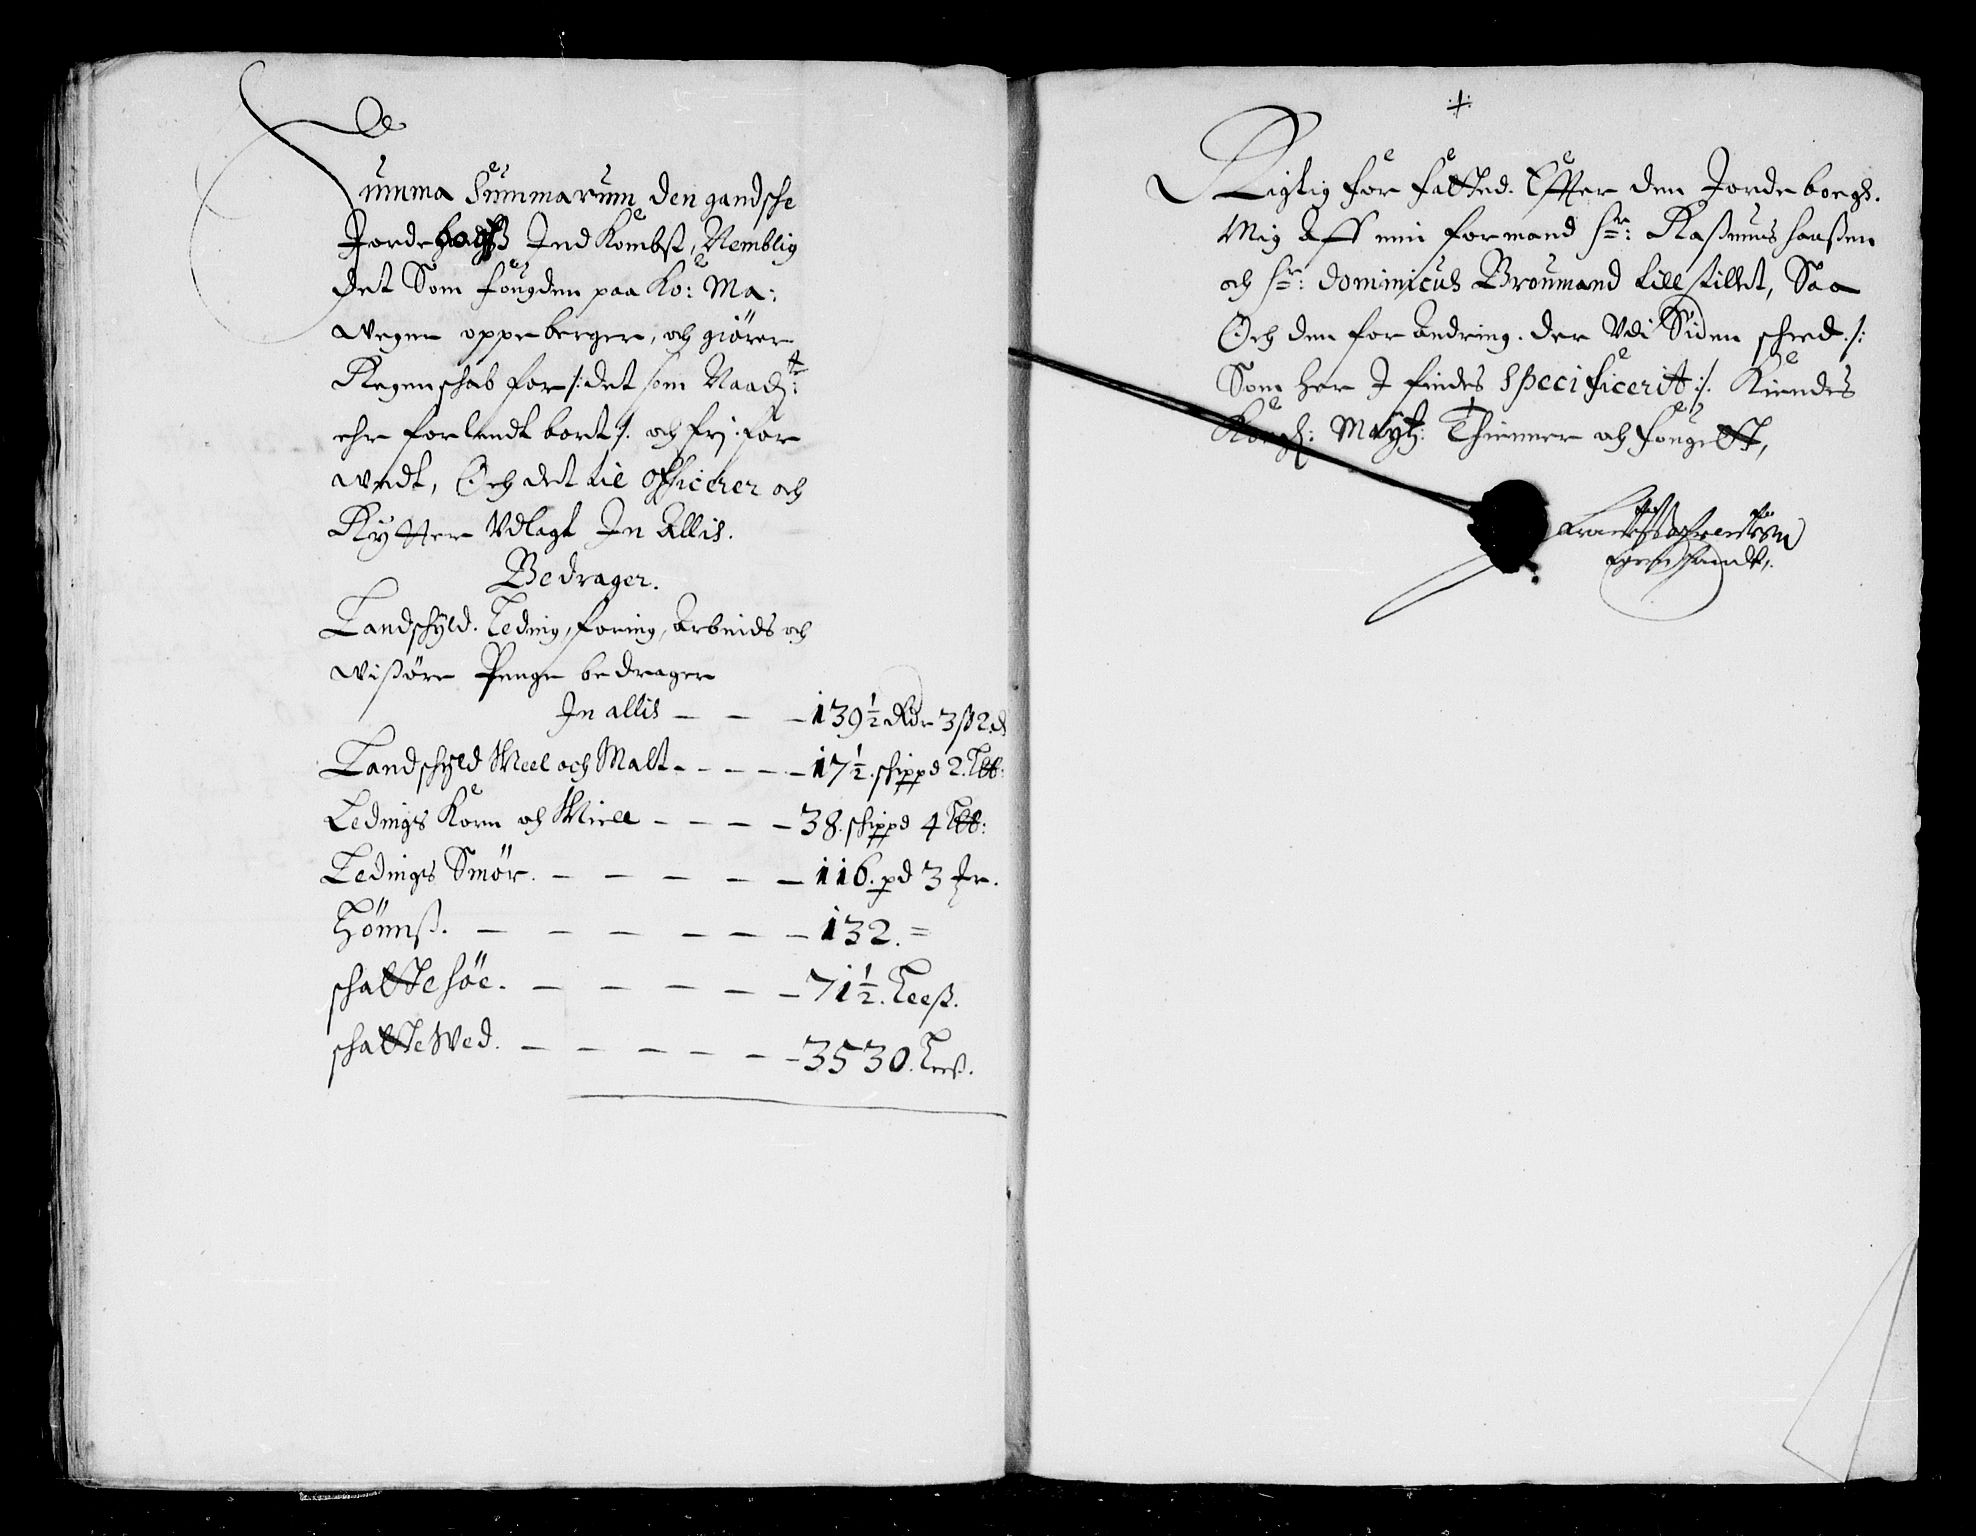 Summa Summarum den gandsche
Jordebogs Ind Kombst, Nemblig
det Som fougden paa Ko: Ma:
wegne oppeberger, och giörer
Regenschab for /: det som Naadst:
ehr forlendt bort :/ och frj for
wndt, Och det til officerer och
Rytter Vdlagt In Allis.
Bedrager.
Landschyld. Leding, foring, Arbeids och
wissöre Penge bedrager
In allis — — — 139½ Rdr 3 ß 2 d
Landschyld Meel och Malt - - - - - 17½. skippd 2. Lb:
Ledings Korn och Miell — — — — 38. skippd 4 Lb:
Ledings Smör. — — — — — 116. pd 3 mr.
Hönnß. — — — — — — 132. =
schatte höe. — — — — — 71½. Leeß.
schatte Wed. — — — — — — 3530. Leeß.
Rigtig for fatted. Effter den Jordebogh.
Mig Aff min formand Sr: Rasmus hanßen
och Sr: dominicus Broumand till stillet, Saa
Och den for andring. der Vdi Siden scheed /:
Som her I findes specificerit :/. Kiendes
Kongl: Maytz: Thienner och fouget,
Egen handt,.